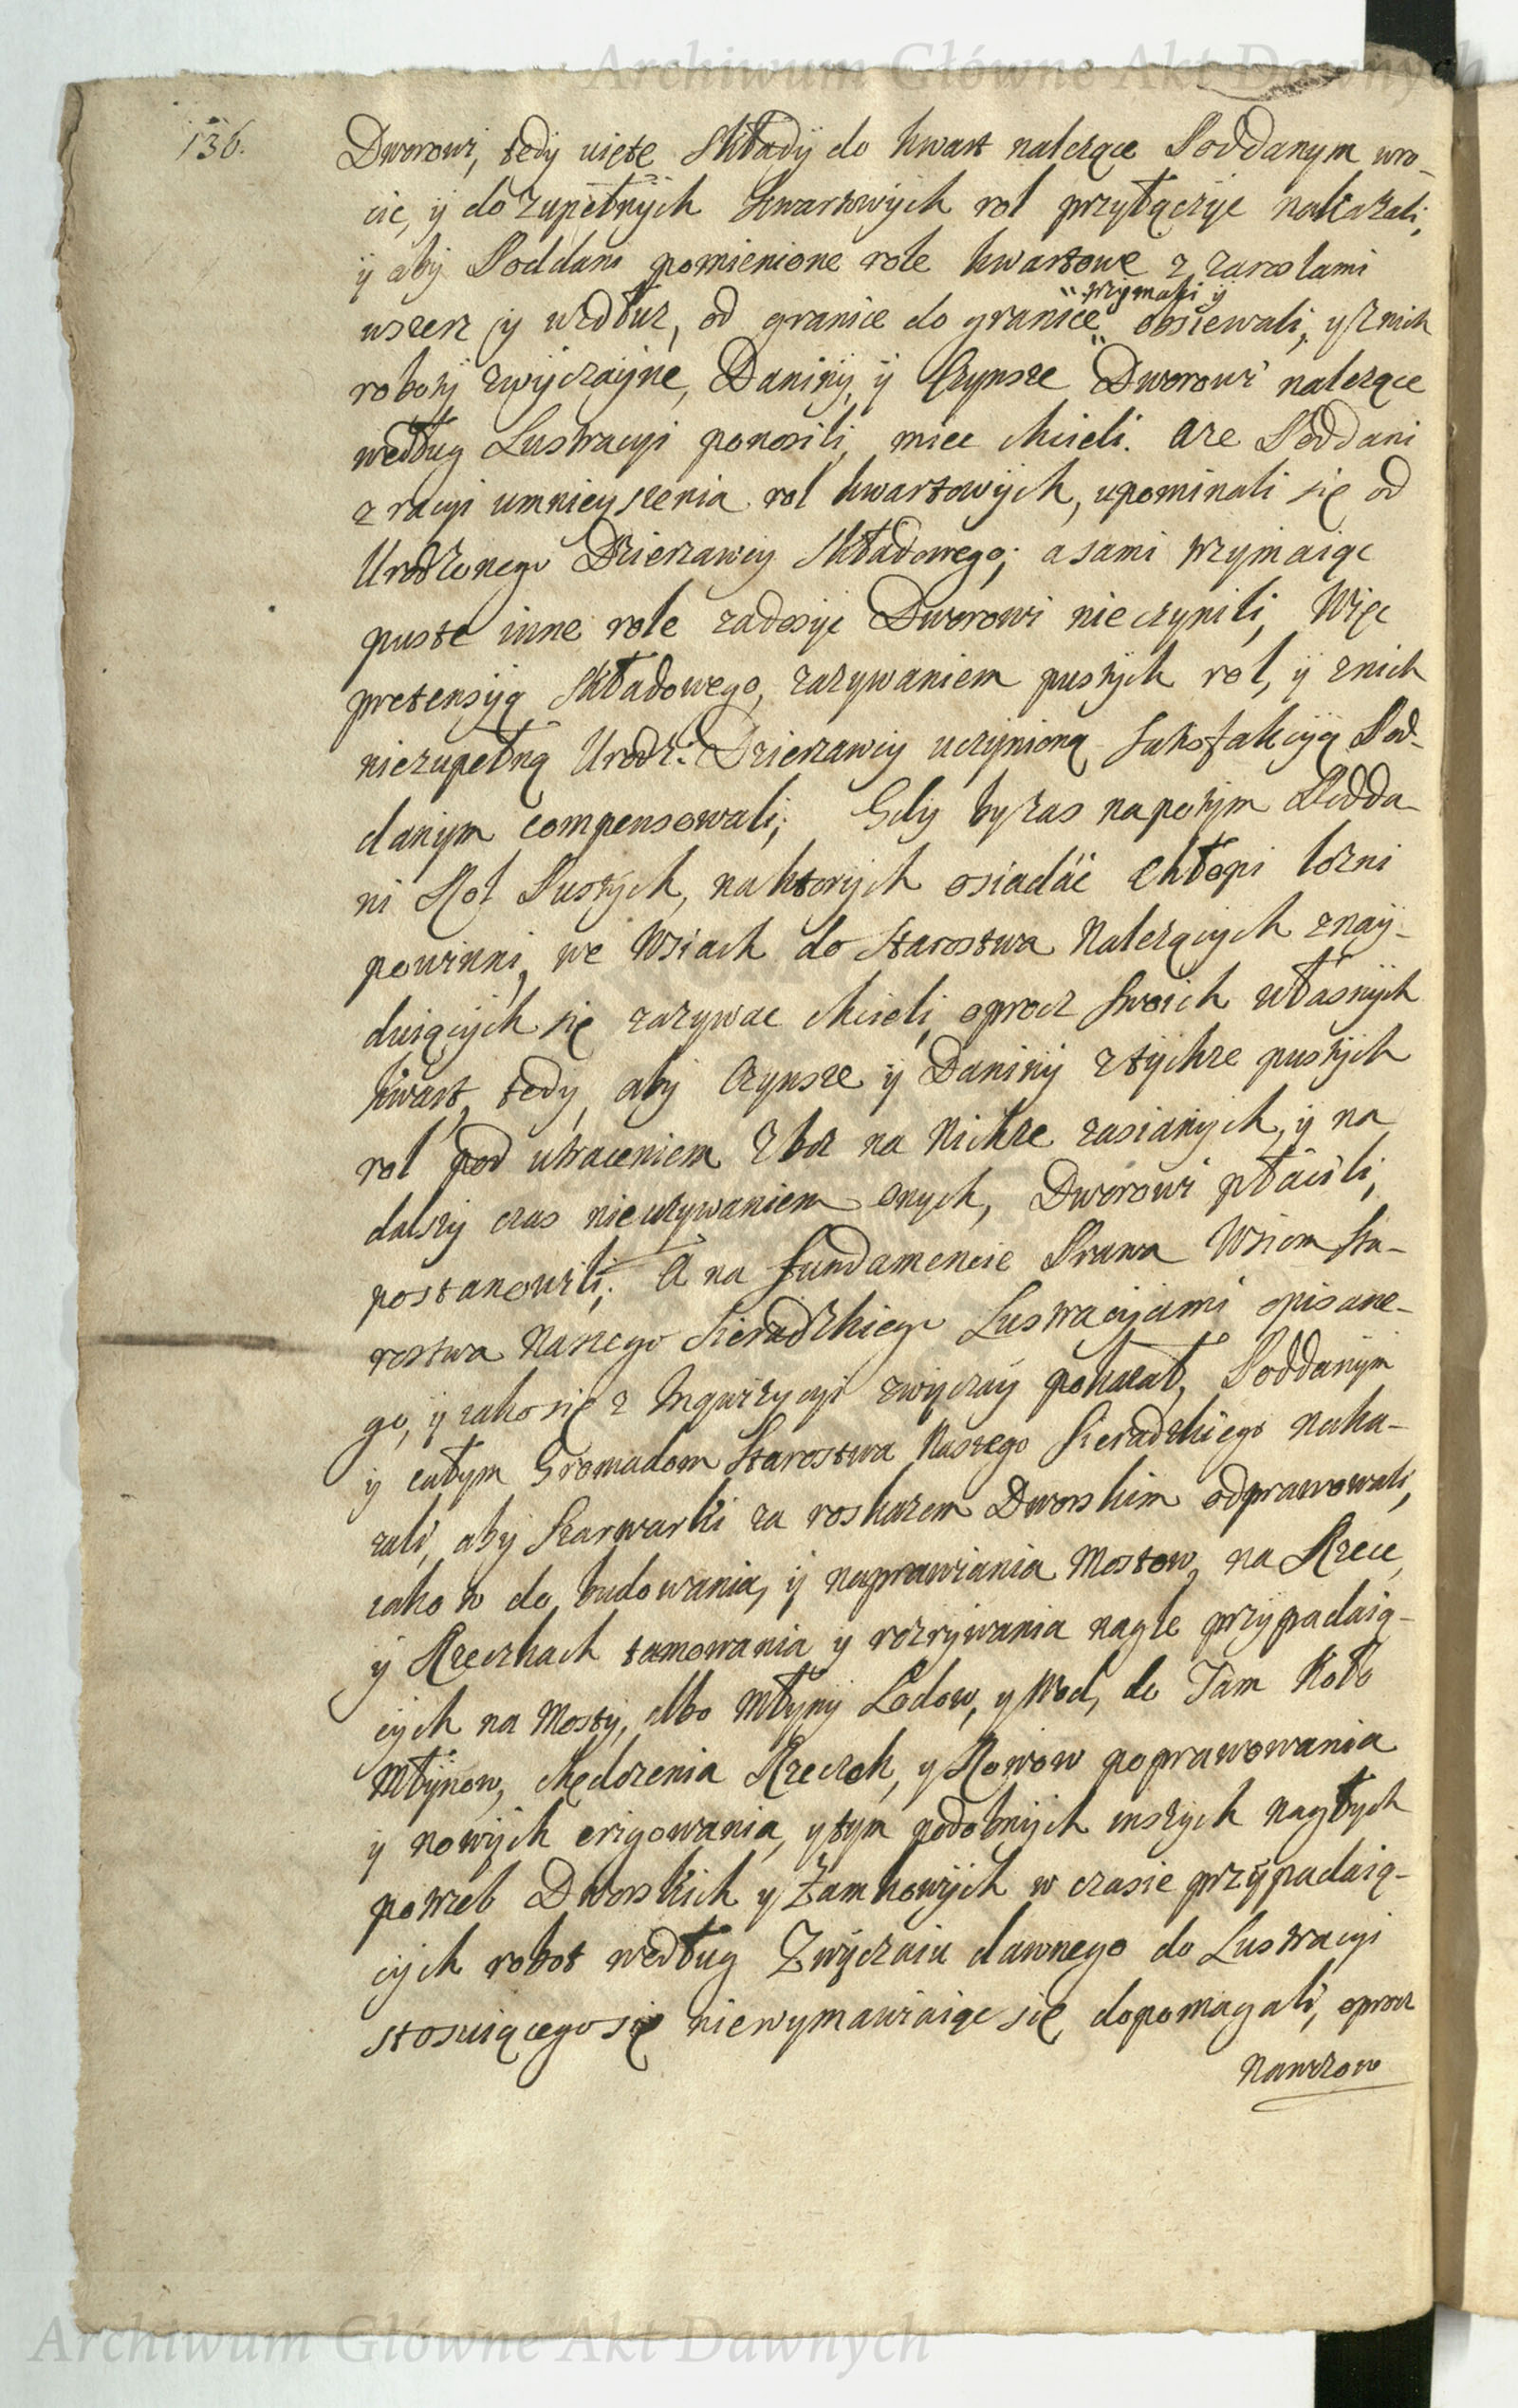 Archiwum Główne Akt Dawnych
136.
Dworowi, tedy uięte Składy do kwart nalezące Poddanym wro-
cic, y do zupełnych kwartowych rol przyłączyc nakazali,
y aby Poddani pomienione role kwartowe z zaroslami
wszerz y wzdłuz, od granice do granice trzymali y obsiewali, y z nich
roboty zwyczayne, Daniny, y Czynsze Dworowi nalezące
według Lustracyi ponosili, miec chcieli. Aze Poddani
z racyi umnieyszenia rol kwartowych, upominali się od
Urodzonego Dzierzawcy Składowego; a sami trzymaiąc
puste inne role zadosyc Dworowi nie czynili, Więc
pretensyą Składowego, zazywaniem pustych rol, y z nich
niezupełną Urodz: Dzierzawcy uczynioną satisfakcyą Pod-
danym compensowali; Gdy by zas napotym Podda-
ni Rol Pustych, na ktorych osiadać Chłopi lozni
powinni, we Wsiach do Starostwa Nalezących znay-
duiących się zazywac chcieli, oprocz swoich własnych
kwart, tedy, aby Czynsze y Daniny z tychze pustych
rol pod utraceniem Zboz na Nichze zasianych, y na
dalszy czas nieuzywaniem onych, Dworowi płacili,
postanowili; A na fundamencie Prawa Wsiom Sta-
rostwa Naszego Sieradzkiego Lustracyiami opisane-
go, y iako się z Inquizycyi zwyczay pokazał, Poddanym
y całym Gromadom Starostwa Naszego Sieradzkiego naka-
zali, aby Szarwarki za roskazem Dworskim odprawowali,
iako to do budowania, y naprawiania Mostow, na Rzece,
y Rzeczkach tamowania y rozrywania nagle przypadaią-
cych na Mosty, albo Młyny Lodow, y Wod, do Tam Koło
Młynow, chędozenia Rzeczek, y Rowow poprawowania
y nowych erigowania, y tym podobnych inszych nagłych
potrzeb Dworskich y Zamkowych w czasie przypadaią-
cych robot według Zwyczaiu dawnego do Lustracyi
stosuiącego się niewymawiaiąc się dopomagali, oprocz
Nawozow
Archiwum Główne Akt Dawnych